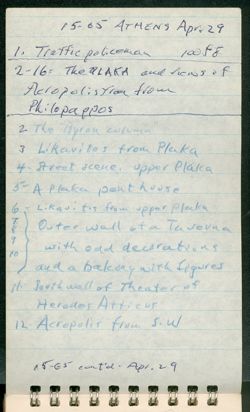 15-65 ATHENS Apr. 29
1. Traffic policeman
2-16: The PLAKA and views of
Acropolis from
Philopappos
2 The "Byron column"
3 Likavitos from Plaka
4. Street scene, upper Plaka
5- A Plaka pent house
6 Likavitis from upper Plaka
7 Outer wall of a Taverna
8
9 with odd decorations
10 and a bakery with figures
11. South wall of Theater of
Herodes Atticus
12. Acropolis from S.W
15-65 cont'd. Apr. 29